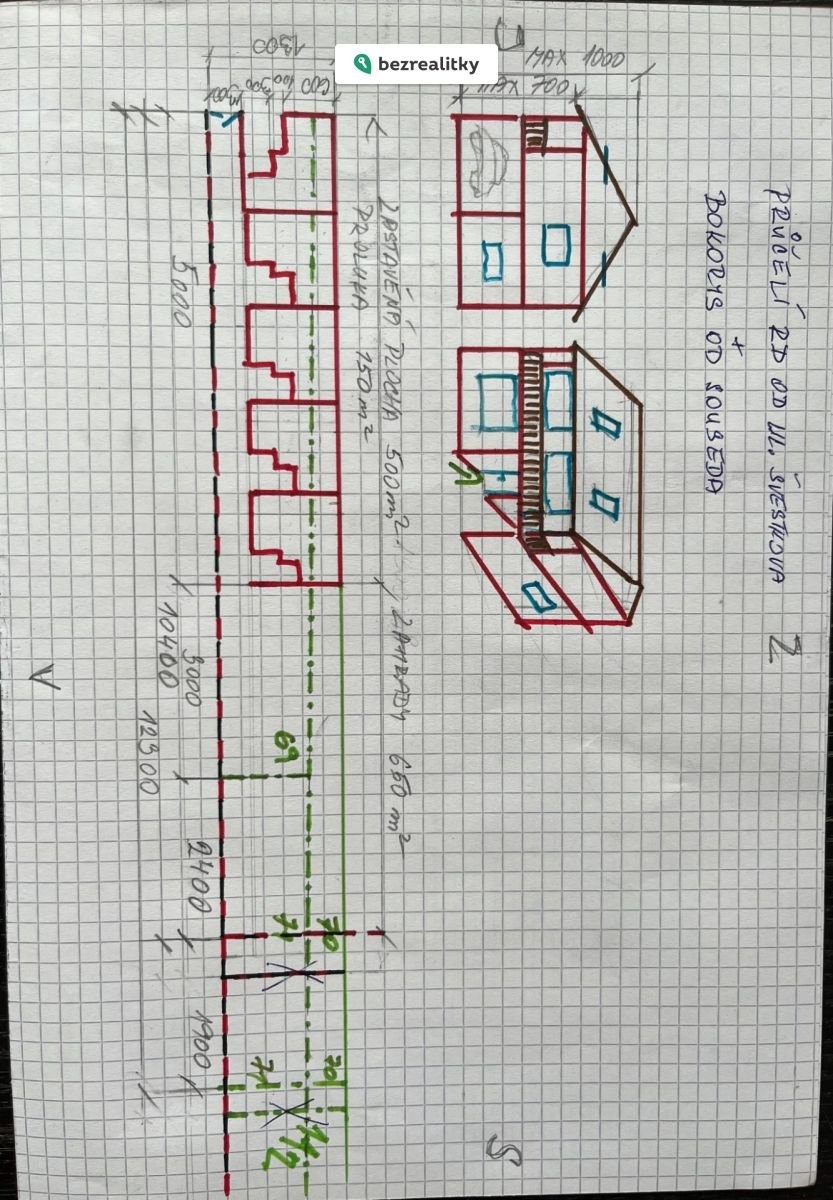 bezrealitky
PRŮČELÍ RD OD UL. ŠVESTKOVA
+
BOKORYS OD SOUSEDA
Z
MAX 1000
700
ZASTAVĚNÁ PLOCHA 500m²
PROLUKA 150m²
ZAHRADY 650 m²
1300
600
100
300
5000
5000
10400
12300
2400
1900
69
71
70
71
70
14/2
V
S